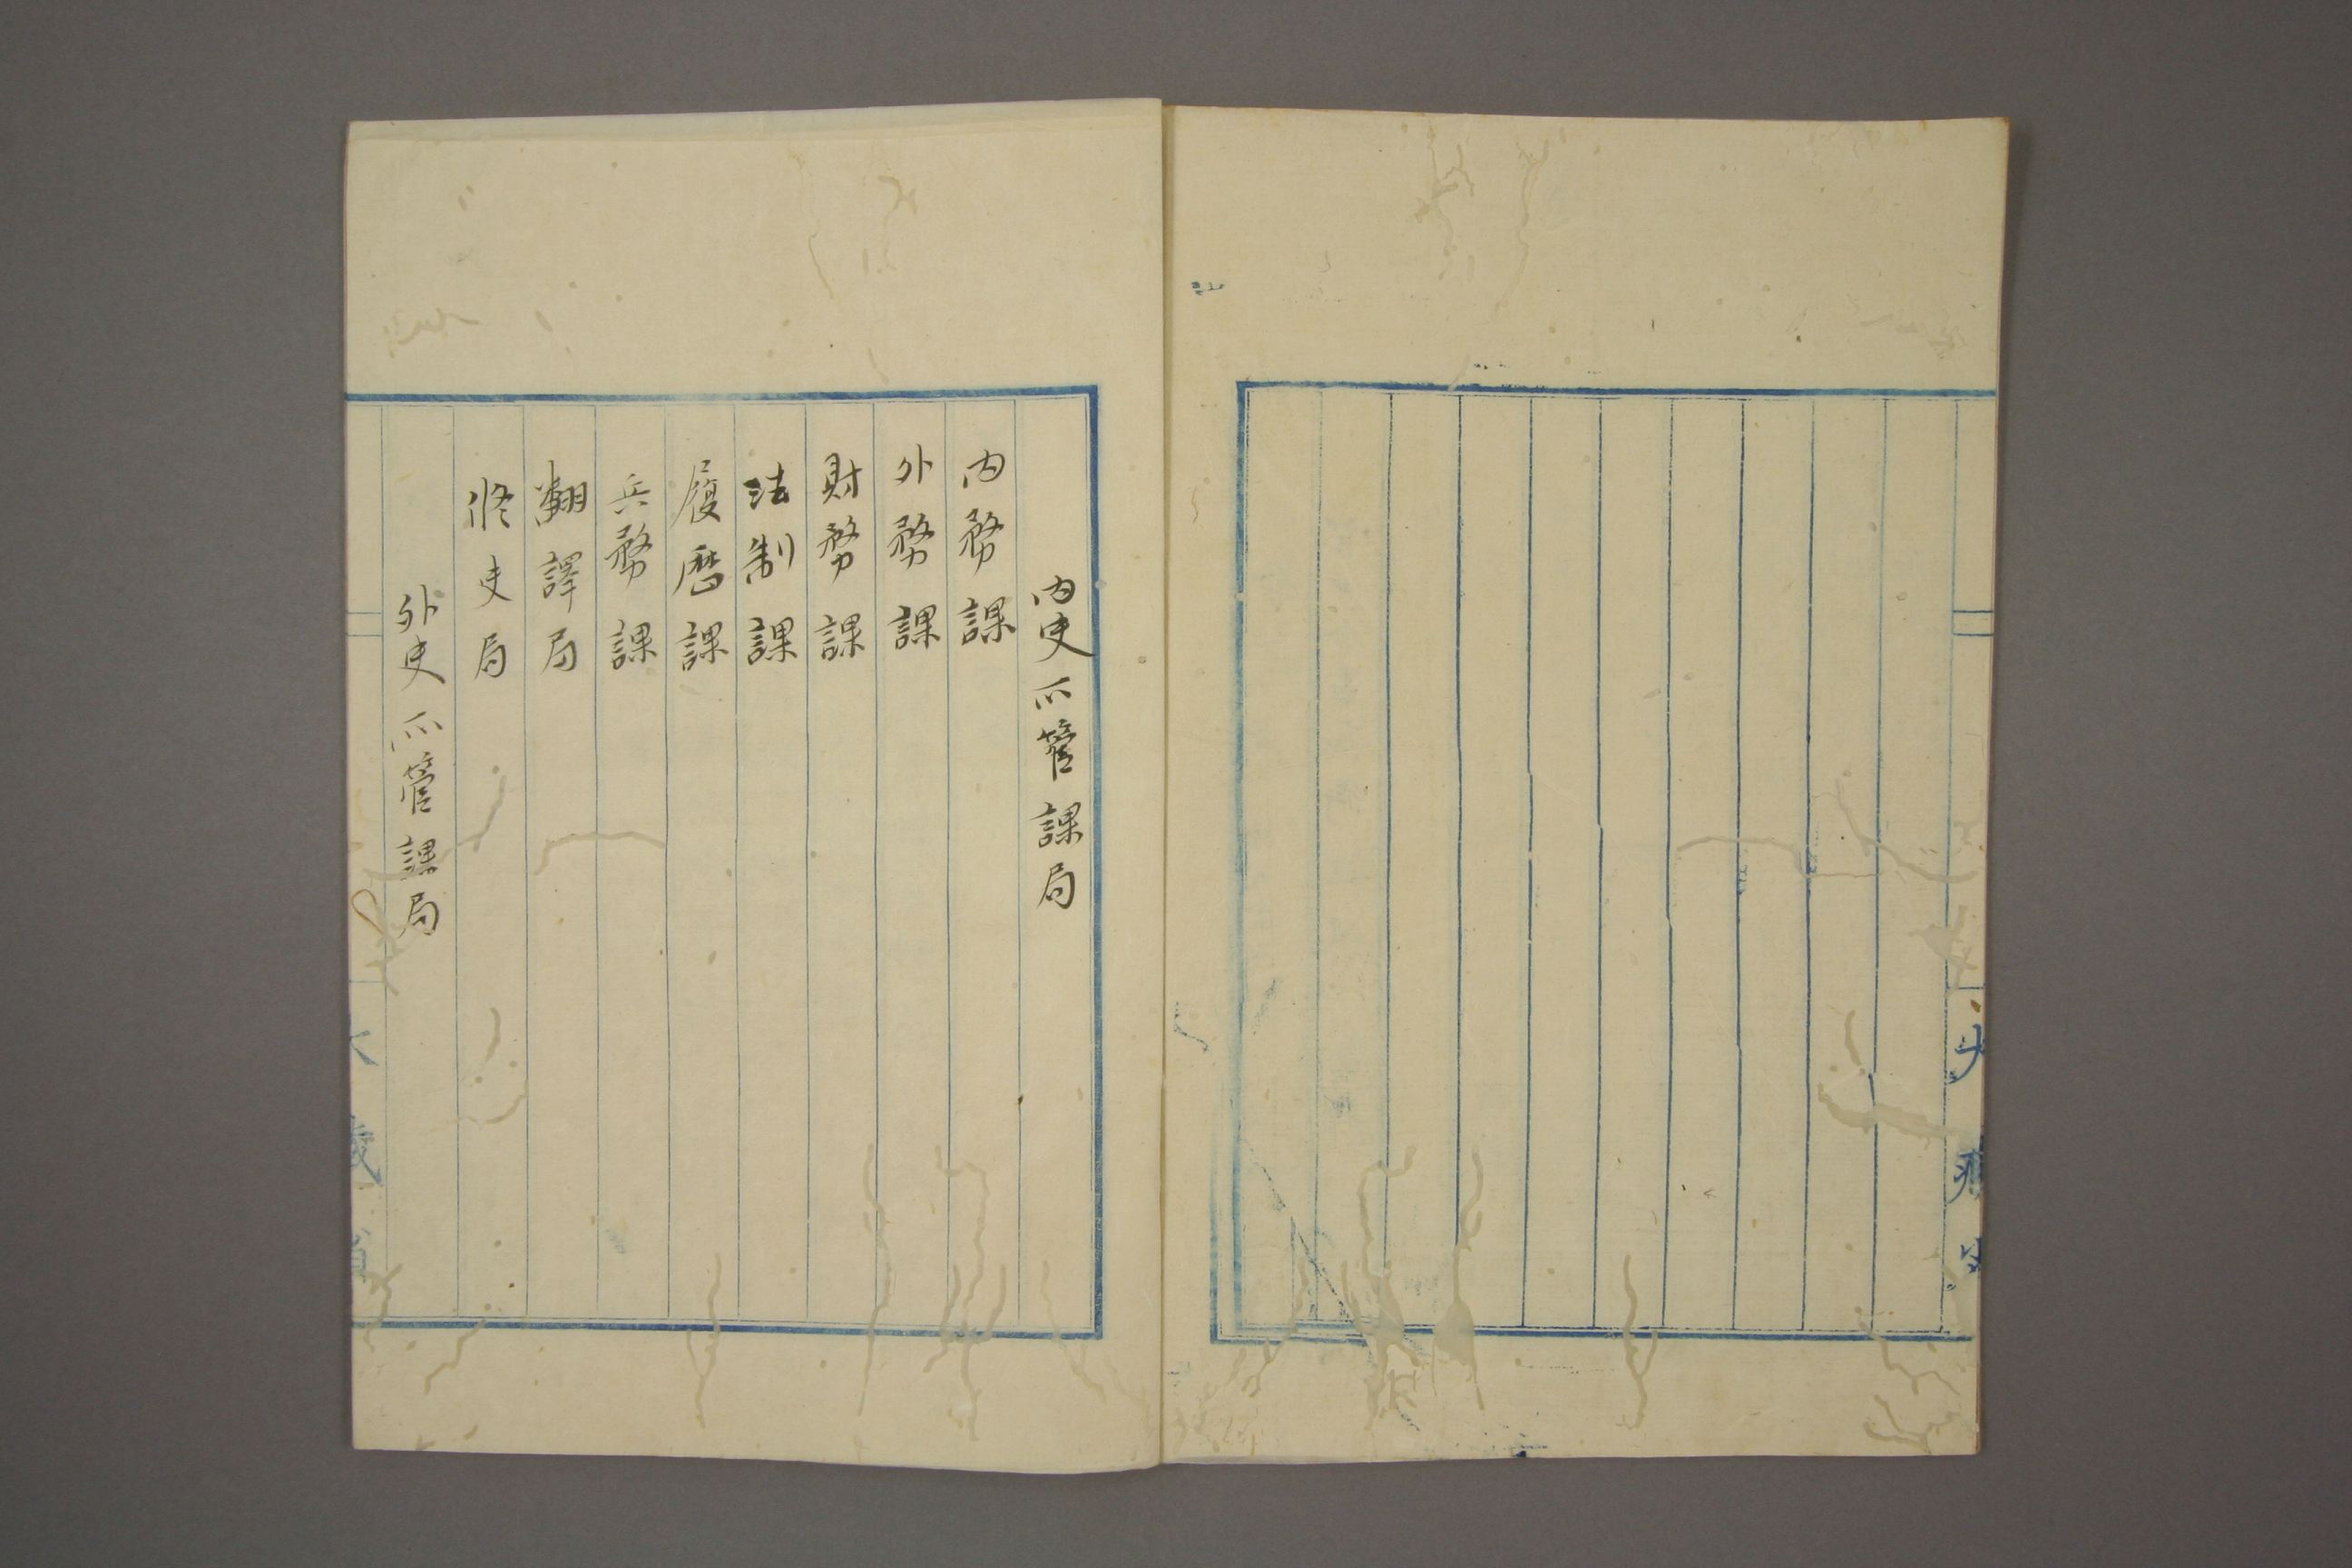 内史所管課局
内務課
外務課
財務課
法制課
履歴課
兵務課
翻譯局
修史局
外史所管課局